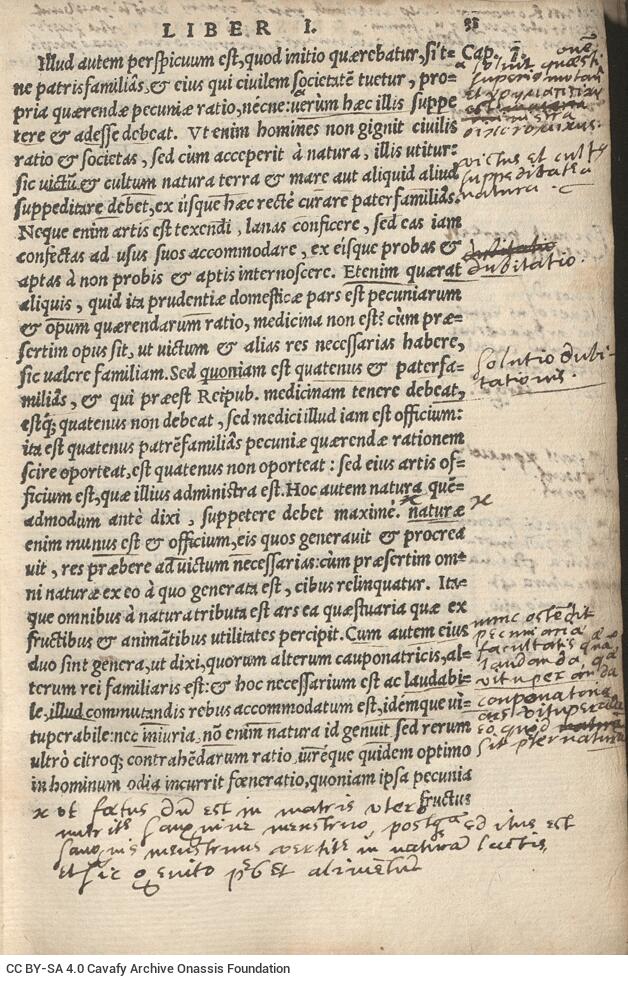 LIBER I. 33
Illud autem perspicuum est, quod initio quærebatur, sit= Cap. 7.
ne patrisfamiliâs, & eius qui ciuilem societatē tuetur, pro=
pria quærendæ pecuniæ ratio, nécne: uerùm hæc illis suppe
tere & adesse debeat. Vt enim homines non gignit ciuilis
ratio & societas, sed cùm acceperit à natura, illis utitur:
sic uictū & cultum natura terra & mare aut aliquid aliud
suppeditare debet, ex iisque hæc rectè curare paterfamiliâs.
Neque enim artis est texendi, lanas conficere, sed eas iam
confectas ad usus suos accommodare, ex eisque probas &
aptas à non probis & aptis internoscere. Etenim quærat
aliquis, quid ita prudentiæ domesticæ pars est pecuniarum
& opum quærendarum ratio, medicina non est? cùm præ=
sertim opus sit, ut uictum & alias res necessarias habere,
sic ualere familiam. Sed quoniam est quatenus & paterfa=
miliâs, & qui præest Reipub. medicinam tenere debeat,
estq́; quatenus non debeat, sed medici illud iam est officium:
ita est quatenus patrēfamiliâs pecuniæ quærendæ rationem
scire oporteat, est quatenus non oporteat: sed eius artis of=
ficium est, quæ illius administra est. Hoc autem natura quē=
admodum antè dixi, suppetere debet maximè. naturæ
enim munus est & officium, eis quos generauit & procrea
uit, res præbere ad uictum necessarias: cùm præsertim om=
ni naturæ ex eo à quo generata est, cibus relinquatur. Ita=
que omnibus à natura tributa est ars ea quæstuaria quæ ex
fructibus & animātibus utilitates percipit. Cum autem eius
duo sint genera, ut dixi, quorum alterum cauponatricis, al=
terum rei familiaris est: & hoc necessarium est ac laudabi=
le, illud commutandis rebus accommodatum est, idémque ui=
tuperabile: nec iniuria, nō enim natura id genuit sed rerum
ultrò citroq; contrahēdarum ratio, iuréque quidem optimo
in hominum odia incurrit fœneratio, quoniam ipsa pecunia
fructus
victus et cultꝰ
suppeditatio
natura.
dubitatio.
Solutio dubi-
tationis.
nunc ostēdit
pecuniariæ
facultatis
laudanda,
vituperanda
cauponatoria
eo quod natura
sit præter naturā
x ut fœtus dū est in matris utero
nutritꝰ sanguine menstruo, postquā editus est
sanguis menstruus vertitꝰ in naturā lactis,
et sic genito præbet alimentum